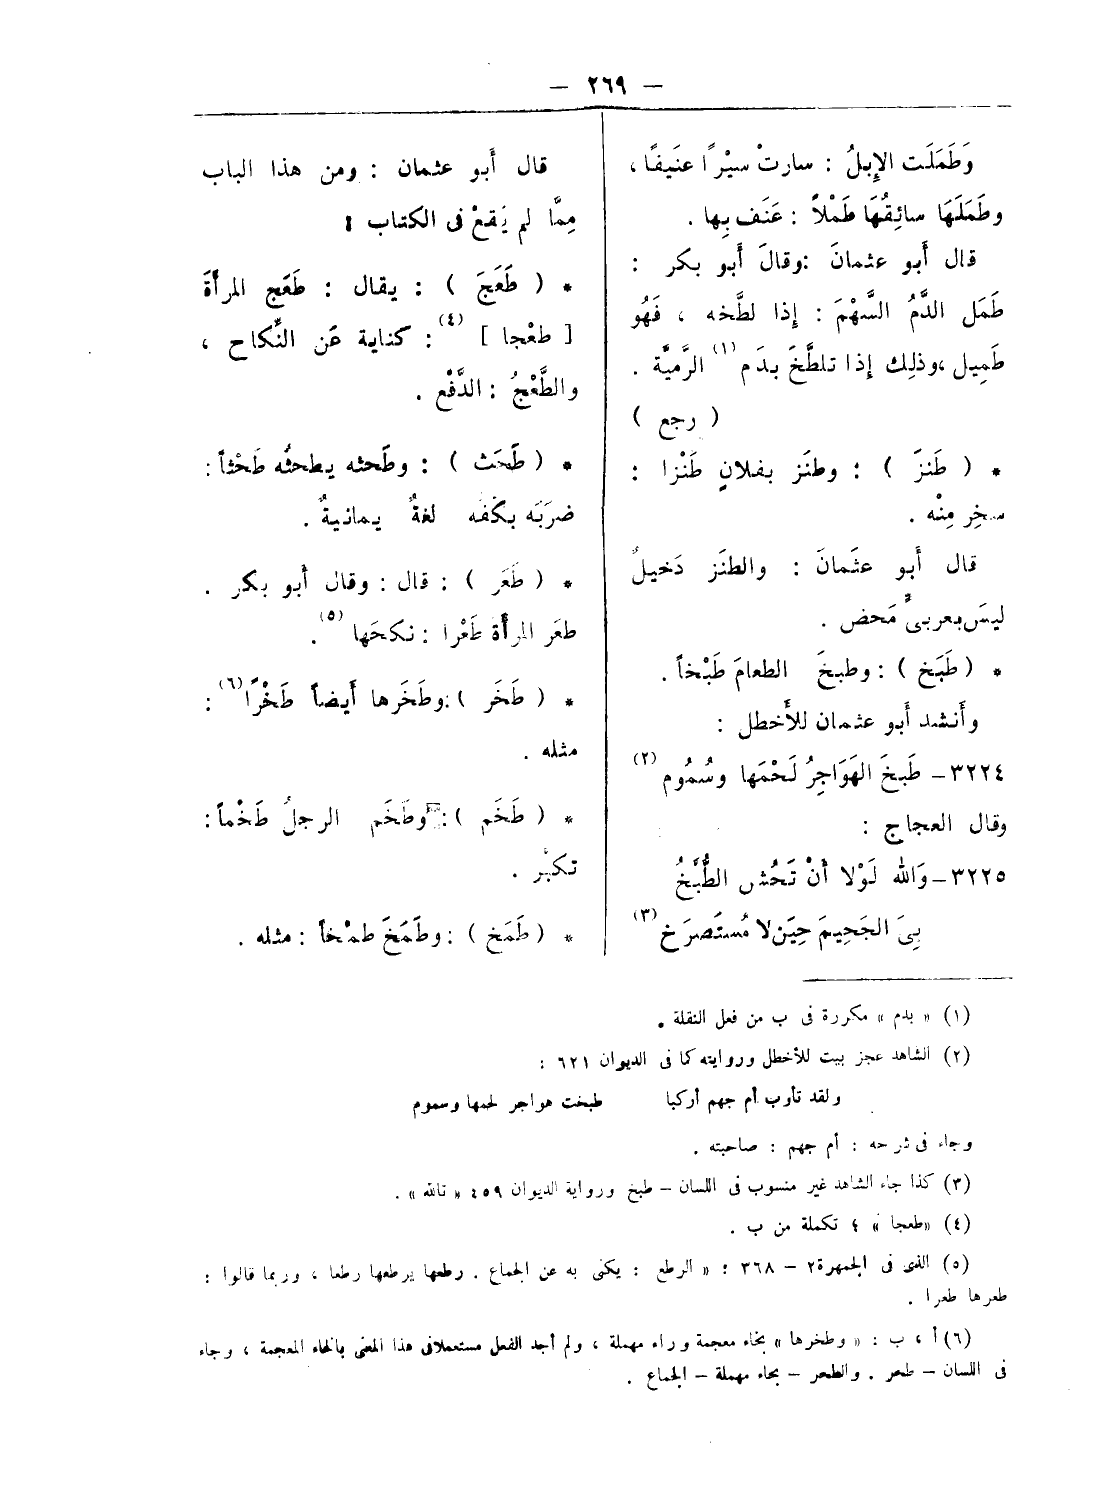 — ٢٦٩ —
وَطَمَلَت الإِبلُ : سارتْ سيْرًا عنَيفًا ،
وطَمَلَهَا سائِقُهَا طَمْلاً : عَنَف بِها .
قال أَبو عثمانَ : وقالَ أَبو بكر :
طَمَل الدَّمُ السَّهْمَ : إِذا لطَّخه ، فَهُو
طَمِيل ، وذلِك إِذا تلطَّخَ بدَم (١) الرَّميَّة .
( رجع )
* ( طَنزَ ) : وطنَز بفلانٍ طَنْزا :
سخِر مِنْه .
قال أَبو عثَمانَ : والطنَز دَخيلٌ
ليسَ بعربىٍّ مَحض .
* ( طَبَخ ) : وطبخَ الطعامَ طَبْخاً .
وأَنشد أَبو عثمان للأَخطل :
٣٢٢٤ – طَبخَ الهَوَاجِرُ لَحْمَها وسُمُوم (٢)
وقال العجاج :
٣٢٢٥ – وَالله لَوْلا أَنْ تَحُشَ الطُّبَّخُ
بِىَ الجَحِيمَ حِيَن لا مُستَصرَخ (٣)
قال أَبو عثمان : ومن هذا الباب
مِمَّا لم يَقعْ فى الكتاب :
* ( طَعَجَ ) : يقال : طَعَج المرأَةَ
[ طعْجا ] (٤) : كناية عَن النِّكاح ،
والطَّعْجُ : الدَّفْع .
* ( طَحَث ) : وطَحثه يطحثُه طَحْثاً :
ضرَبَه بكَفه لغةٌ يمانيةٌ .
* ( طَعَر ) : قال : وقال أَبو بكر .
طعَر المرأَة طَعْرا : نكحَها (٥) .
* ( طَخَر ) : وطَخَرها أَيضاً طَخْرًا (٦) :
مثله .
* ( طَخَم ) : وطَخَم الرجلُ طَخْماً :
تكبَّر .
* ( طَمَخ ) : وطَمَخَ طمْخاً : مثله .
(١) « بدم » مكررة فى ب من فعل النقلة .
(٢) الشاهد عجز بيت للأخطل وروايته كما فى الديوان ٦٢١ :
ولقد تأوب أم جهم أركبا طبخت هواجر لحمها وسموم
وجاء فى شرحه : أم جهم : صاحبته .
(٣) كذا جاء الشاهد غير منسوب فى اللسان – طبخ ورواية الديوان ٤٥٩ « تالله » .
(٤) «طعجا » ؛ تكملة من ب .
(٥) الذى فى الجمهرة ٢ – ٣٦٨ : « الرطع : يكنى به عن الجماع . رطعها يرطعها رطعا ، وربما قالوا :
طعرها طعرا .
(٦) أ ، ب : « وطخرها » بخاء معجمة وراء مهملة ، ولم أجد الفعل مستعملا فى هذا المعنى بالخاء المعجمة ، وجاء
فى اللسان – طحر . والطحر – بحاء مهملة – الجماع .